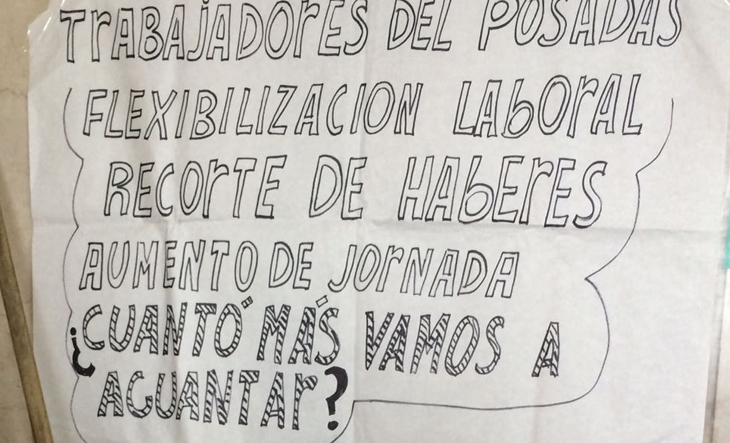 TRABAJADORES DEL POSADAS
FLEXIBILIZACION LABORAL
RECORTE DE HABERES
AUMENTO DE JORNADA
¿CUANTO MÁS VAMOS A
AGUANTAR?